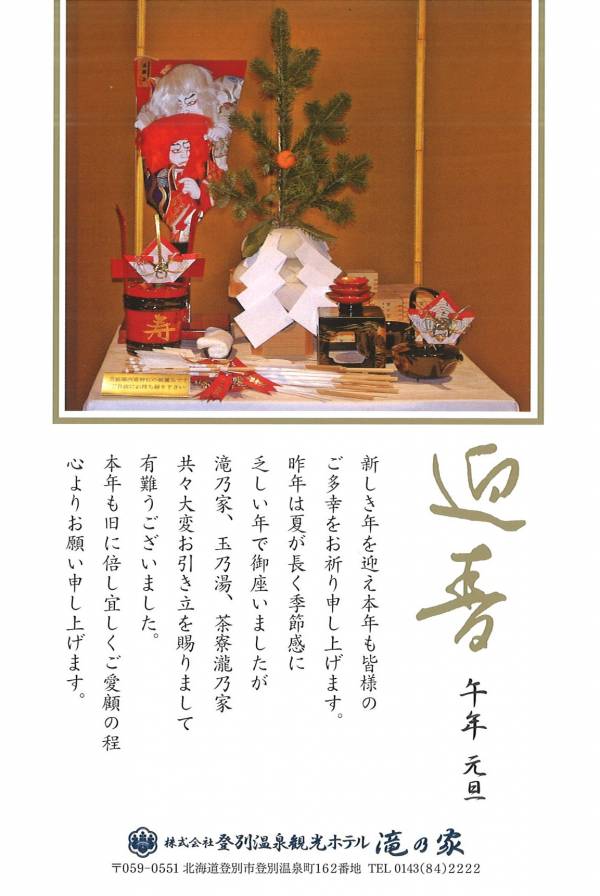 寿
迎春
午年 元旦
新しき年を迎え本年も皆様の
ご多幸をお祈り申し上げます。
昨年は夏が長く季節感に
乏しい年で御座いましたが
滝乃家、玉乃湯、茶寮瀧乃家
共々大変お引き立を賜りまして
有難うございました。
本年も旧に倍し宜しくご愛顧の程
心よりお願い申し上げます。
株式会社 登別温泉観光ホテル 滝乃家
〒059-0551 北海道登別市登別温泉町162番地 TEL 0143(84)2222